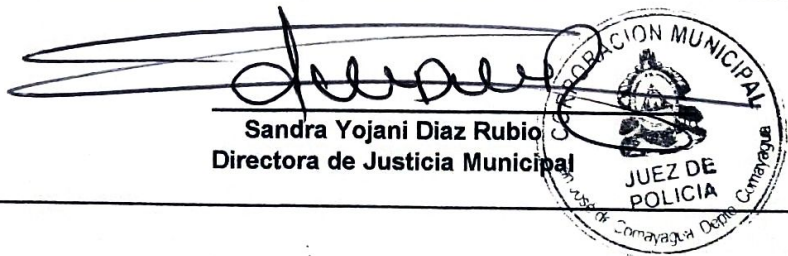 Sandra Yojani Diaz Rubio
Directora de Justicia Municipal
CORPORACION MUNICIPAL
JUEZ DE
POLICIA
San José de Comayagua Depto Comayagua